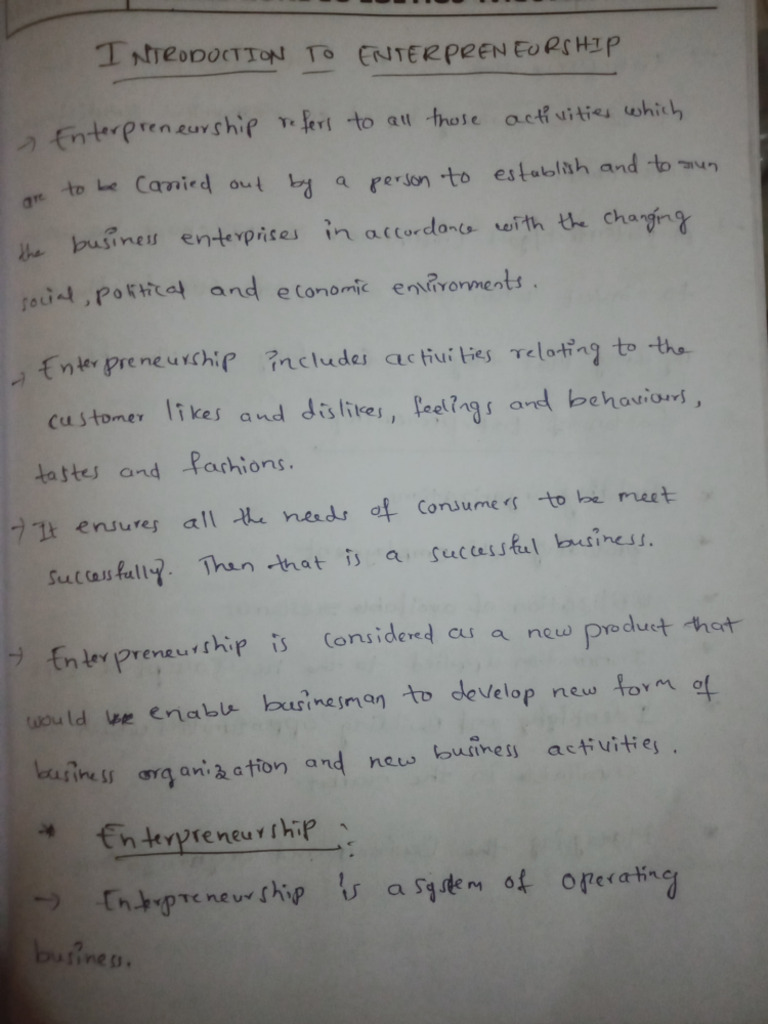 INTRODUCTION TO ENTERPRENEURSHIP
→ Enterpreneurship refers to all those activities which
are to be Carried out by a person to establish and to run
the business enterprises in accordance with the changing
social, political and economic environments.
→ Enterpreneurship includes activities relating to the
customer likes and dislikes, feelings and behaviours,
tastes and fashions.
→ It ensures all the needs of consumers to be meet
successfully. Then that is a successful business.
→ Enterpreneurship is considered as a new product that
would enable businesman to develop new form of
business organization and new business activities.
* Enterpreneurship :-
→ Enterpreneurship is a system of operating
business.